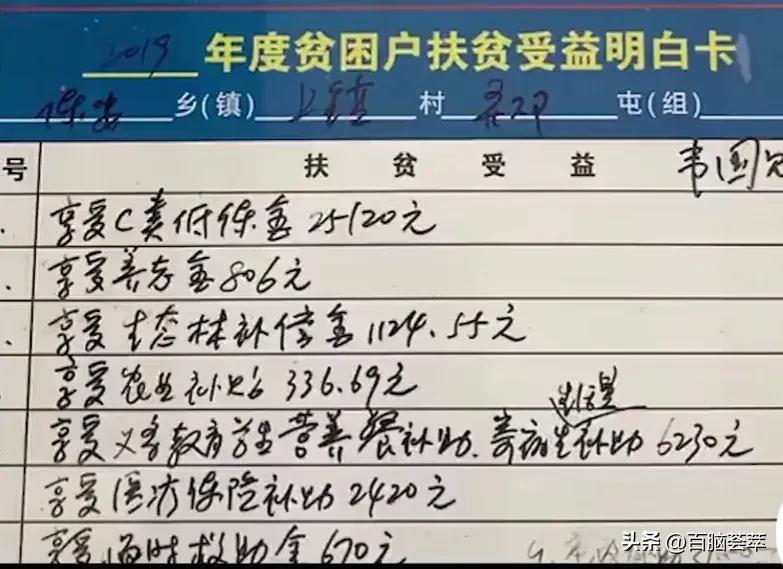 2019 年度贫困户扶贫受益明白卡
保安 乡(镇) 上镇 村 屯(组)
号 扶贫受益 韦国
享受C类低保金25120元
享受养老金806元
享受生态林补偿金1124.55元
享受农业补贴336.69元
生活
享受义务教育学生营养餐补助、寄宿生补助6230元
享受医疗保险补助2420元
享受临时救助金670元
头条 @百脑荟萃